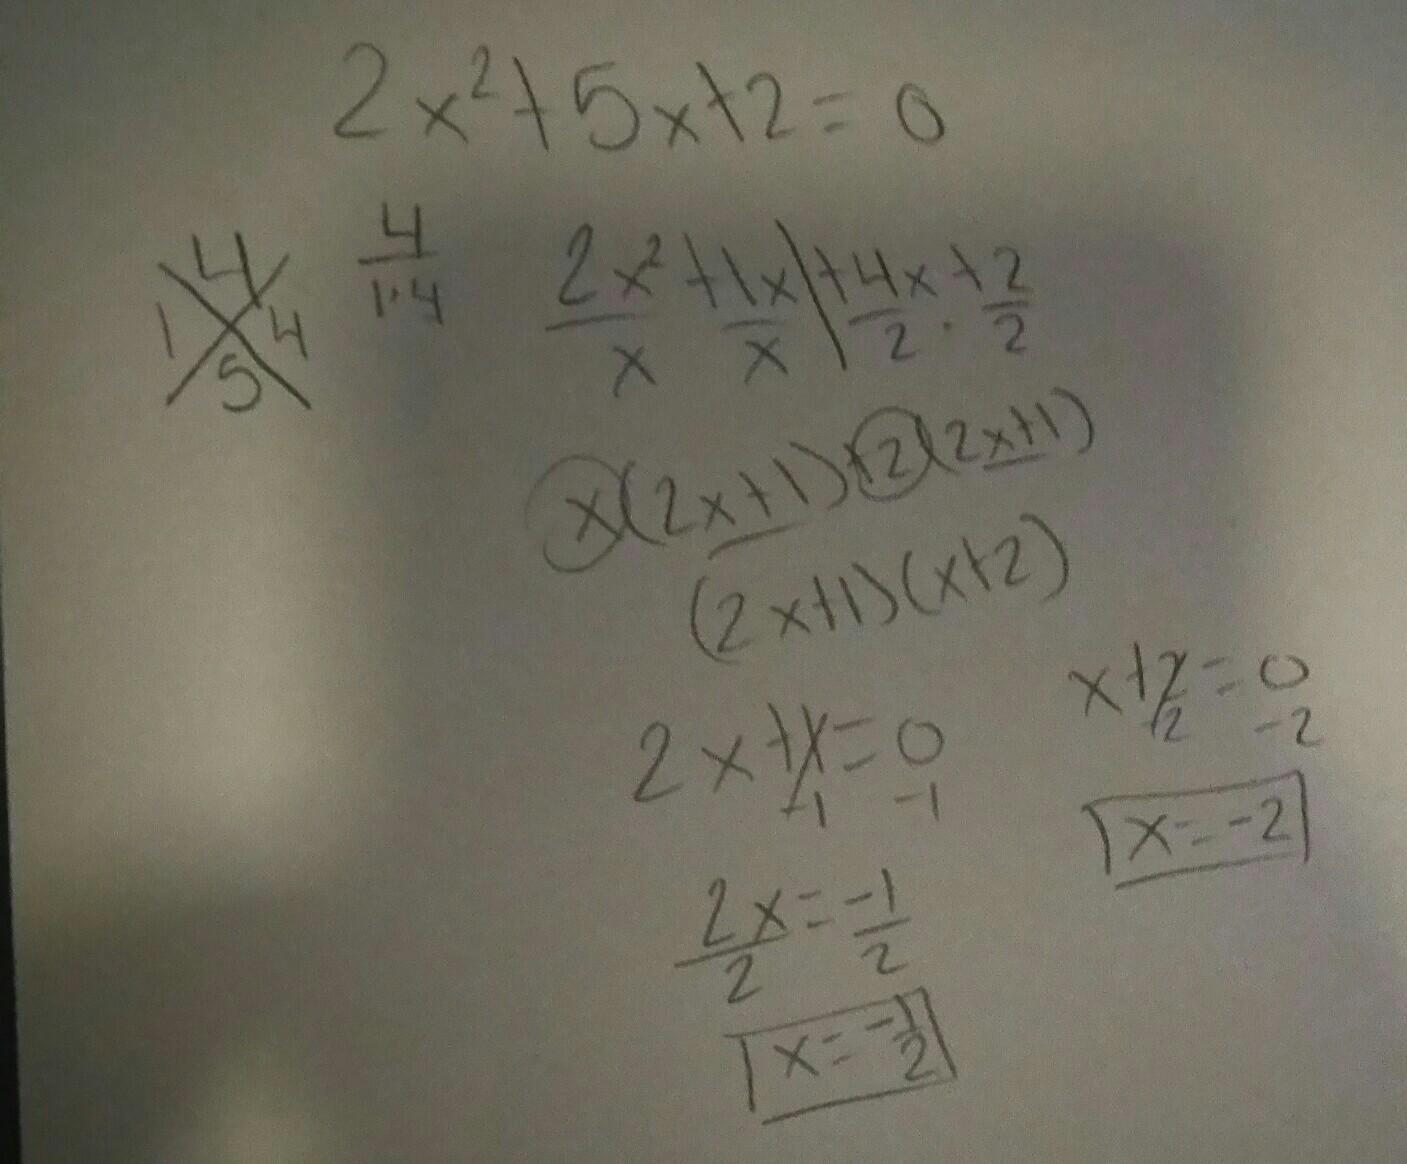 2x²+5x+2=0
4
1 4
5
4
1·4
2x²+1x|+4x+2
x x 2 · 2
x(2x+1)+2(2x+1)
(2x+1)(x+2)
x+2=0
-2 -2
x=-2
2x+1=0
-1 -1
2x=-1
2 2
x=-1
2